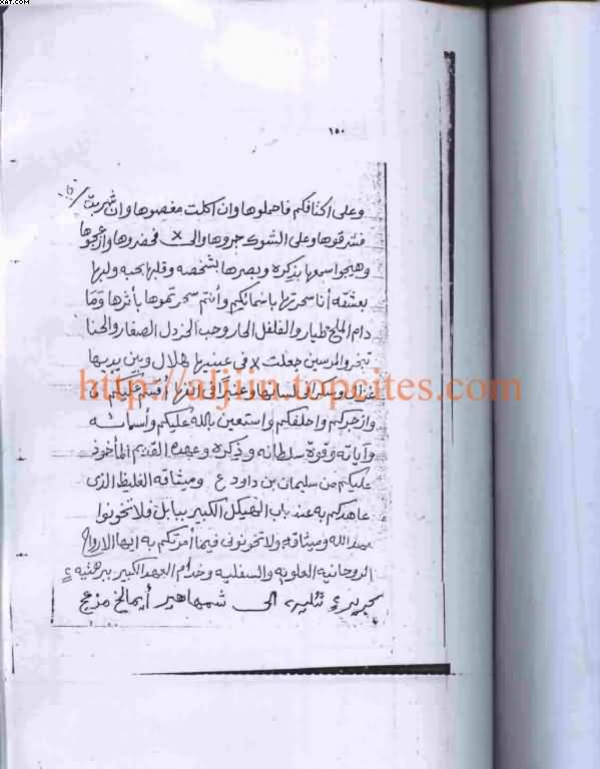 XAT.COM
١٥٠
وعلى اكتافكم فاحملوها وان اكلت مغصوها وان شربت
فشرقوها وعلى الشوك جروها والى x فحضروها وازعجوها
وهيجوا سمعها بذكره وبصرها بشخصه وقلبها بحبه ولبها
بعشقه أنا سحرتها باسمائكم وأنتم سحرتموها بأثرها وما
دام الملح طيار والفلفل الحار وحب الخردل الصغار والحنا
تبخر والمرسين جعلت x فى عينيها هلال وبين يديها
غزال فى لسانها وعنبرا فى قسم عليكم
وازجركم واحلفكم واستعين بالله عليكم وأسمائه
وآياته وقوة سلطانه وذكره وعهده القديم المأخوذ
عليكم من سليمان بن داود ع وميثاقه الغليظ الذى
عاهدكم به عند باب الهيكل الكبير ببابل فلا تخونوا
عهد الله وميثاقه ولا تخونونى فيما أمرتكم به ايها الارواح
الروحانيه العلويه والسفليه وخدام العهد الكبير ببرهتيه ء
كرير ء تتليه الى شمهاهير أيمالخ مزعج
http://aljiin.topcites.com